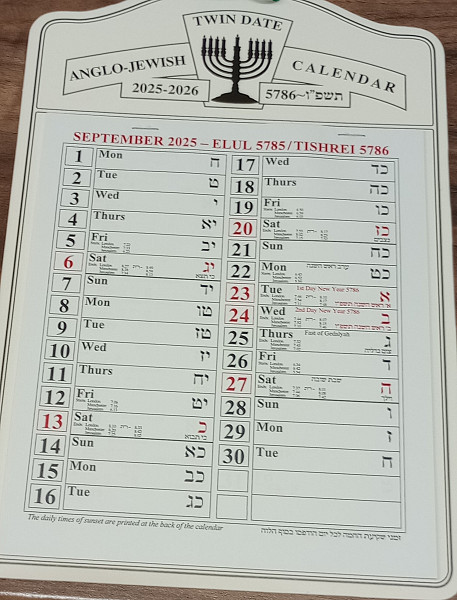 TWIN DATE
ANGLO-JEWISH CALENDAR
2025-2026 5786~תשפ"ו
SEPTEMBER 2025 – ELUL 5785/TISHREI 5786
1 Mon ח
2 Tue ט
3 Wed י
4 Thurs יא
5 Fri יב
6 Sat יג
כי תצא
7 Sun יד
8 Mon טו
9 Tue טז
10 Wed יז
11 Thurs יח
12 Fri יט
13 Sat כ
כי תבוא
14 Sun כא
15 Mon כב
16 Tue כג
17 Wed כד
18 Thurs כה
19 Fri כו
20 Sat כז
נצבים
21 Sun כח
22 Mon ערב ראש השנה כט
23 Tue 1st Day New Year 5786 א
24 Wed 2nd Day New Year 5786 ב
25 Thurs Fast of Gedalyah ג
צום גדליה
26 Fri ד
27 Sat שבת שובה ה
וילך
28 Sun ו
29 Mon ז
30 Tue ח
The daily times of sunset are printed at the back of the calendar
זמני שקיעת החמה לכל יום הודפסו בסוף הלוח